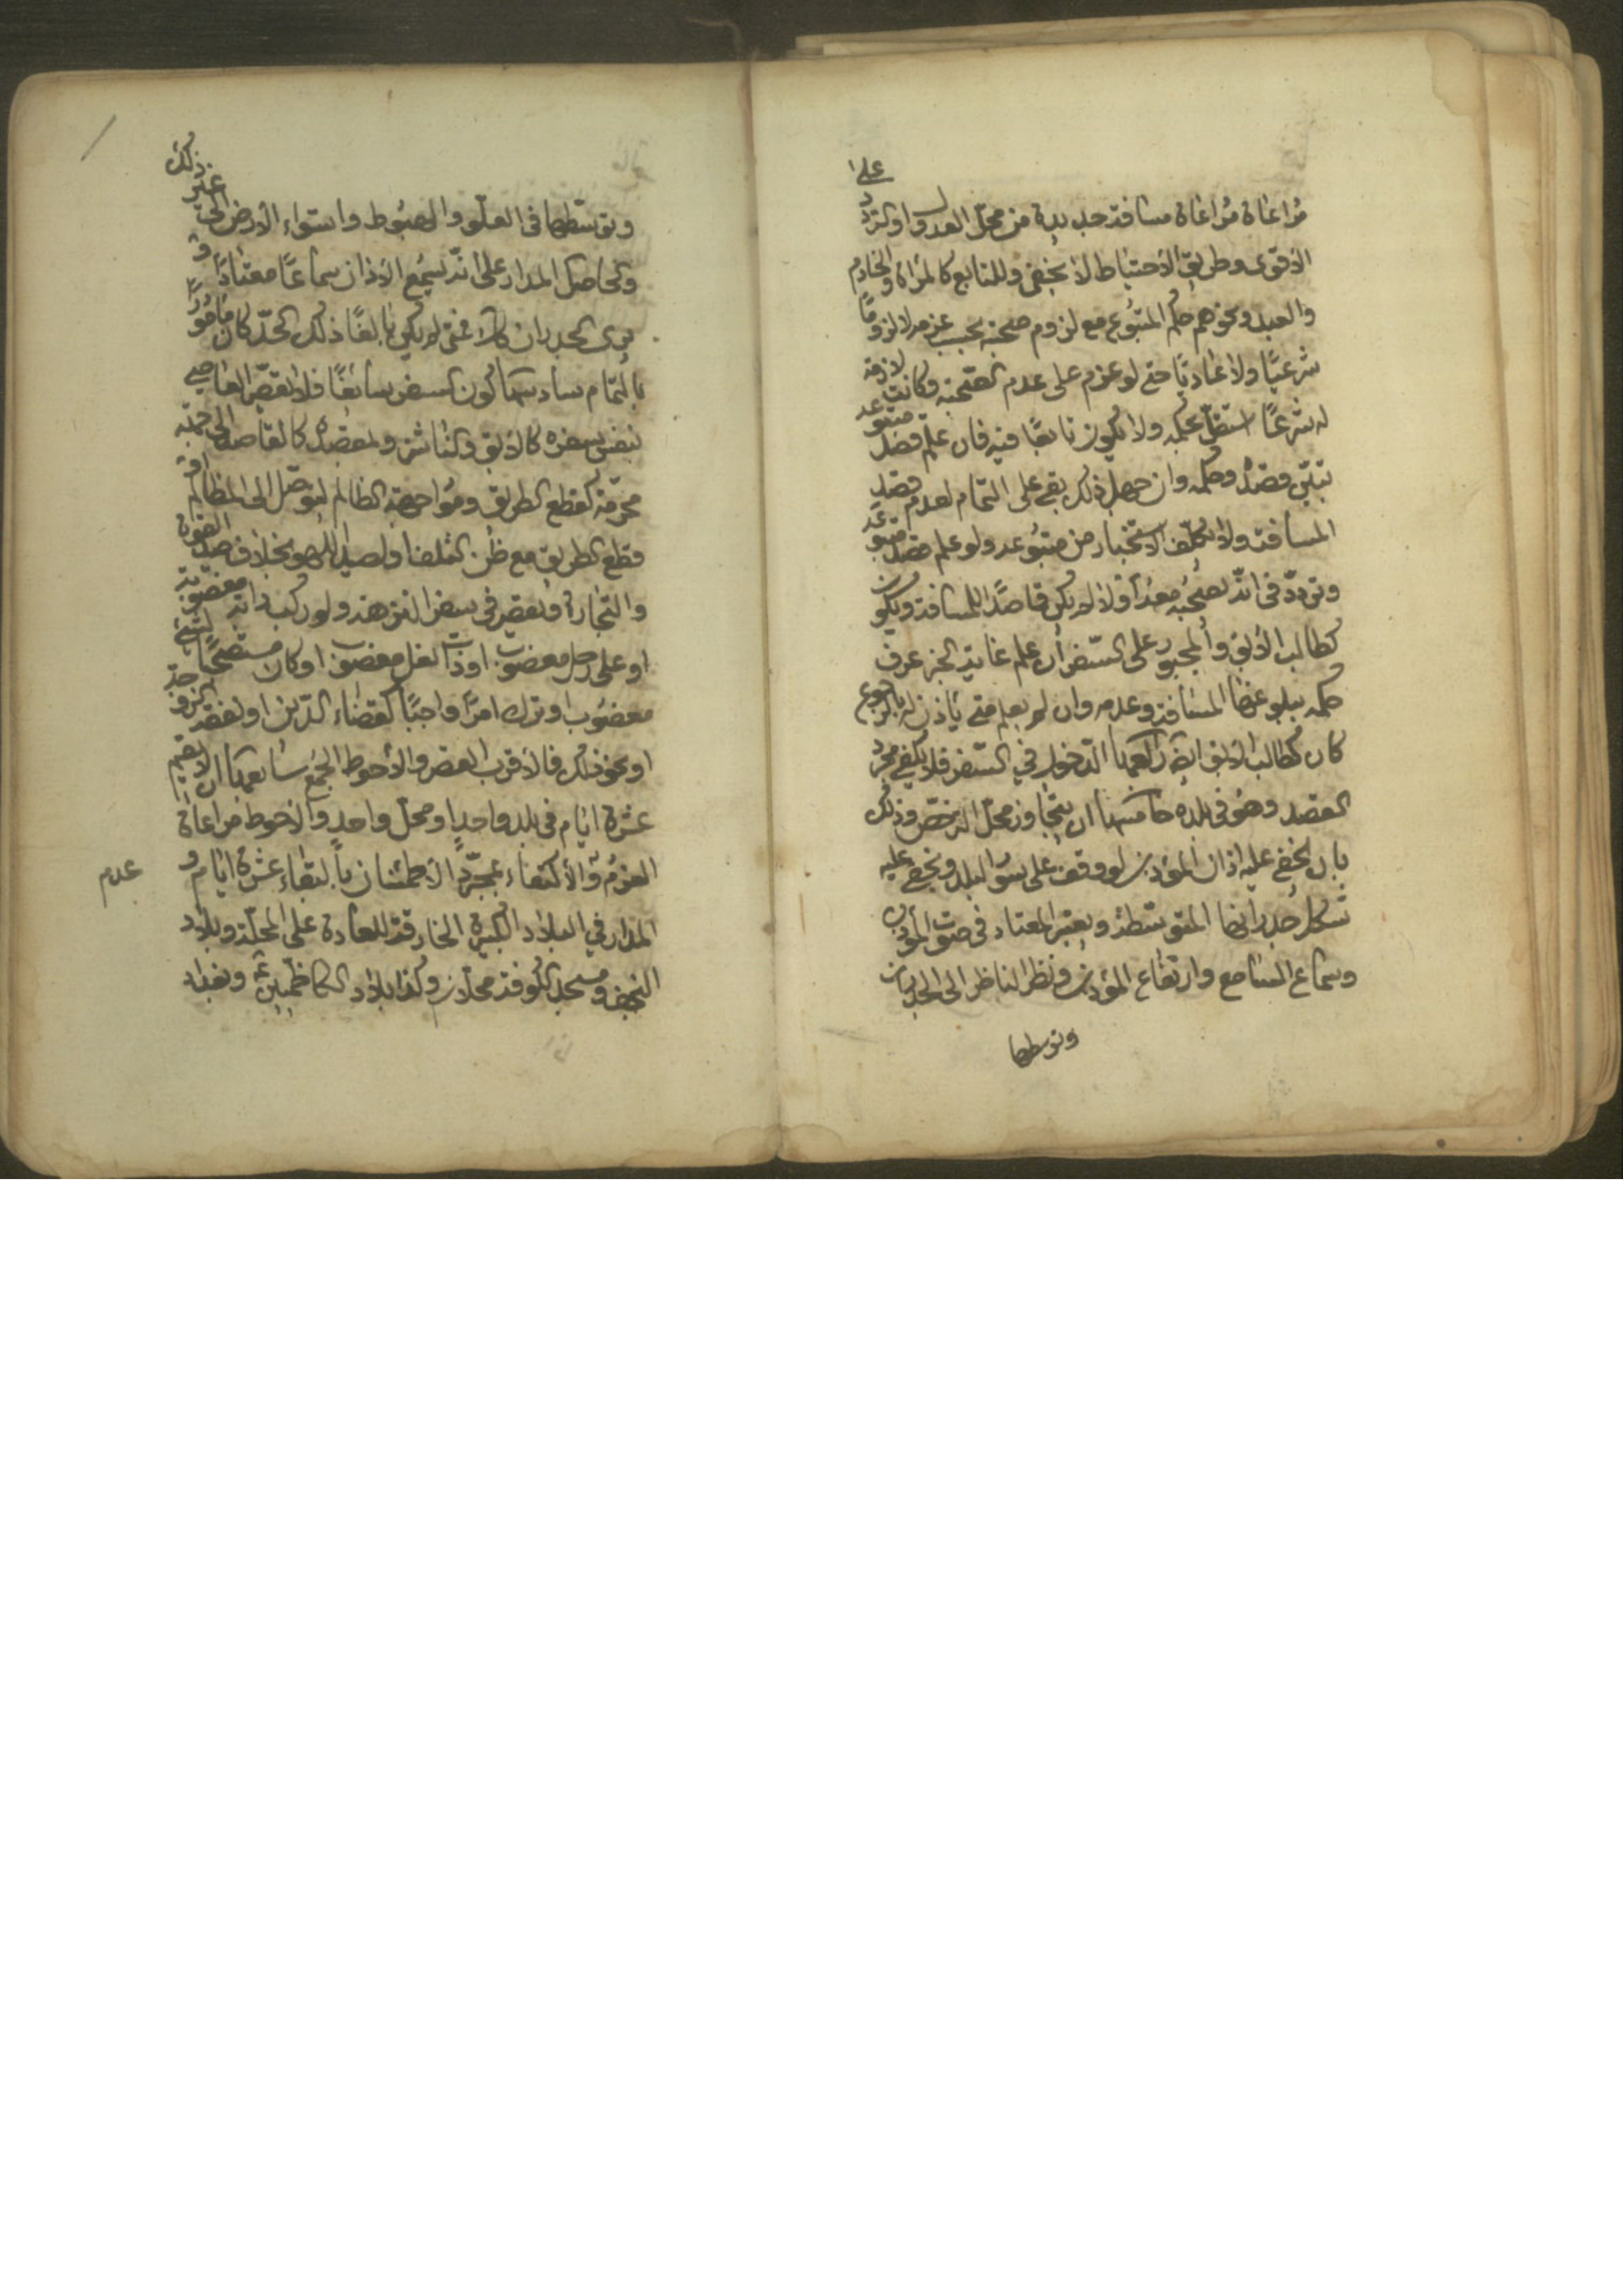 مراعاة مراعاة مسافة جديدة من محل العدول او التردد على
الاقوى وطريق الاحتياط لا يخفى وللتابع كالمراة والخادم
والعبد ونحوهم حكم المتبوع مع لزوم صحبته بحسب عزمه لا لزومًا
شرعيًا ولا عاديًا حتى لو عزم على عدم الصحبة وكانت لازمة
له شرعًا استقل بحكمه ولا يكون تابعًا فيه فان علم قصد متبوعه
تبين قصده وحكمه وان جهل ذلك بقي على التمام لعدم قصد
المسافة ولا يكلف الاستخبار من متبوعه ولو علم قصد متبوعه
وتردد في انه يصحبه معه او لا لم يكن قاصدًا للمسافة ويكون
كطالب الآبق والمجبور على السفر ان علم غاية الجبر عرف
حكمه ببلوغها المسافة وعدمه وان لم يعلم متى ياذن له بالرجوع
كان كطالب الآبق ايضا رابعها الدخول في السفر فلا يكفي مجرد
القصد وهو في بلده خامسها ان يتجاوز محل الترخص وذلك
بان يخفى عليه اذان المؤذن لو وقف على سور البلد ويخفى عليه
شكل جدرانها المتوسطة ويعتبر المعتاد في صوت المؤذن
وسماع السامع وارتفاع المؤذن ونظر الناظر الى الجدران
وتوسطها
وتوسطها في العلو والهبوط واستواء الارض الى غير ذلك
والحاصل المدار على انه يسمع الاذان سماعًا معتادًا و
يرى الجدران كك فمتى لم يكن بالغًا ذلك الحد كان مامورًا
بالتمام سادسها كون السفر سائغًا فلا يقصر العاصي
بنفس سفره كالآبق والناشز وبقصده كالقاصد الى جهة
محرمة كقطع الطريق ومواجهة الظالم ليوصل الى المظالم او
قطع الطريق مع ظن التلف او لصيد اللهو بخلاف صيد القوت
والتجارة ويقصر في سفر النزهة ولو ركب دابة مغصوبة
او على رحل مغصوب او ذات نعل مغصوب او كان مستصحبًا لشيء
مغصوب او ترك امرًا واجبًا كقضاء الدين او نفقة الزوجة
او نحو ذلك فالاقرب القصر والاحوط الجمع سابعها ان لا يقيم
عشرة ايام في بلد واحد او محل واحد والاحوط مراعاة
العزم والاكتفاء بمجرد الاطمئنان بالبقاء عشرة ايام و
عدم
المدار في البلاد الكبيرة الخارقة للعادة على المحلة وبلاد
النجف ومسجد الكوفة محلان وكذا بلاد الكاظمين وبغداد